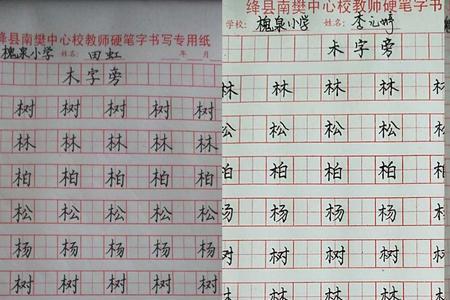 绛县南樊中心校教师硬笔字书写专用纸
槐泉小学 姓名: 田虹 年 月
木字旁
树 树 树 树 树
林 林 林 林 林
柏 柏 柏 柏 柏
松 松 松 松 松
杨 杨 杨 杨 杨
树 树 树 树 树
绛县南樊中心校教师硬笔字书
学校: 槐泉小学 姓名: 李
木字旁
林 林 林 林 林
松 松 松 松 松
柏 柏 柏 柏 柏
杨 杨 杨 杨 杨
树 树 树 树 树
林 林 林 林 林